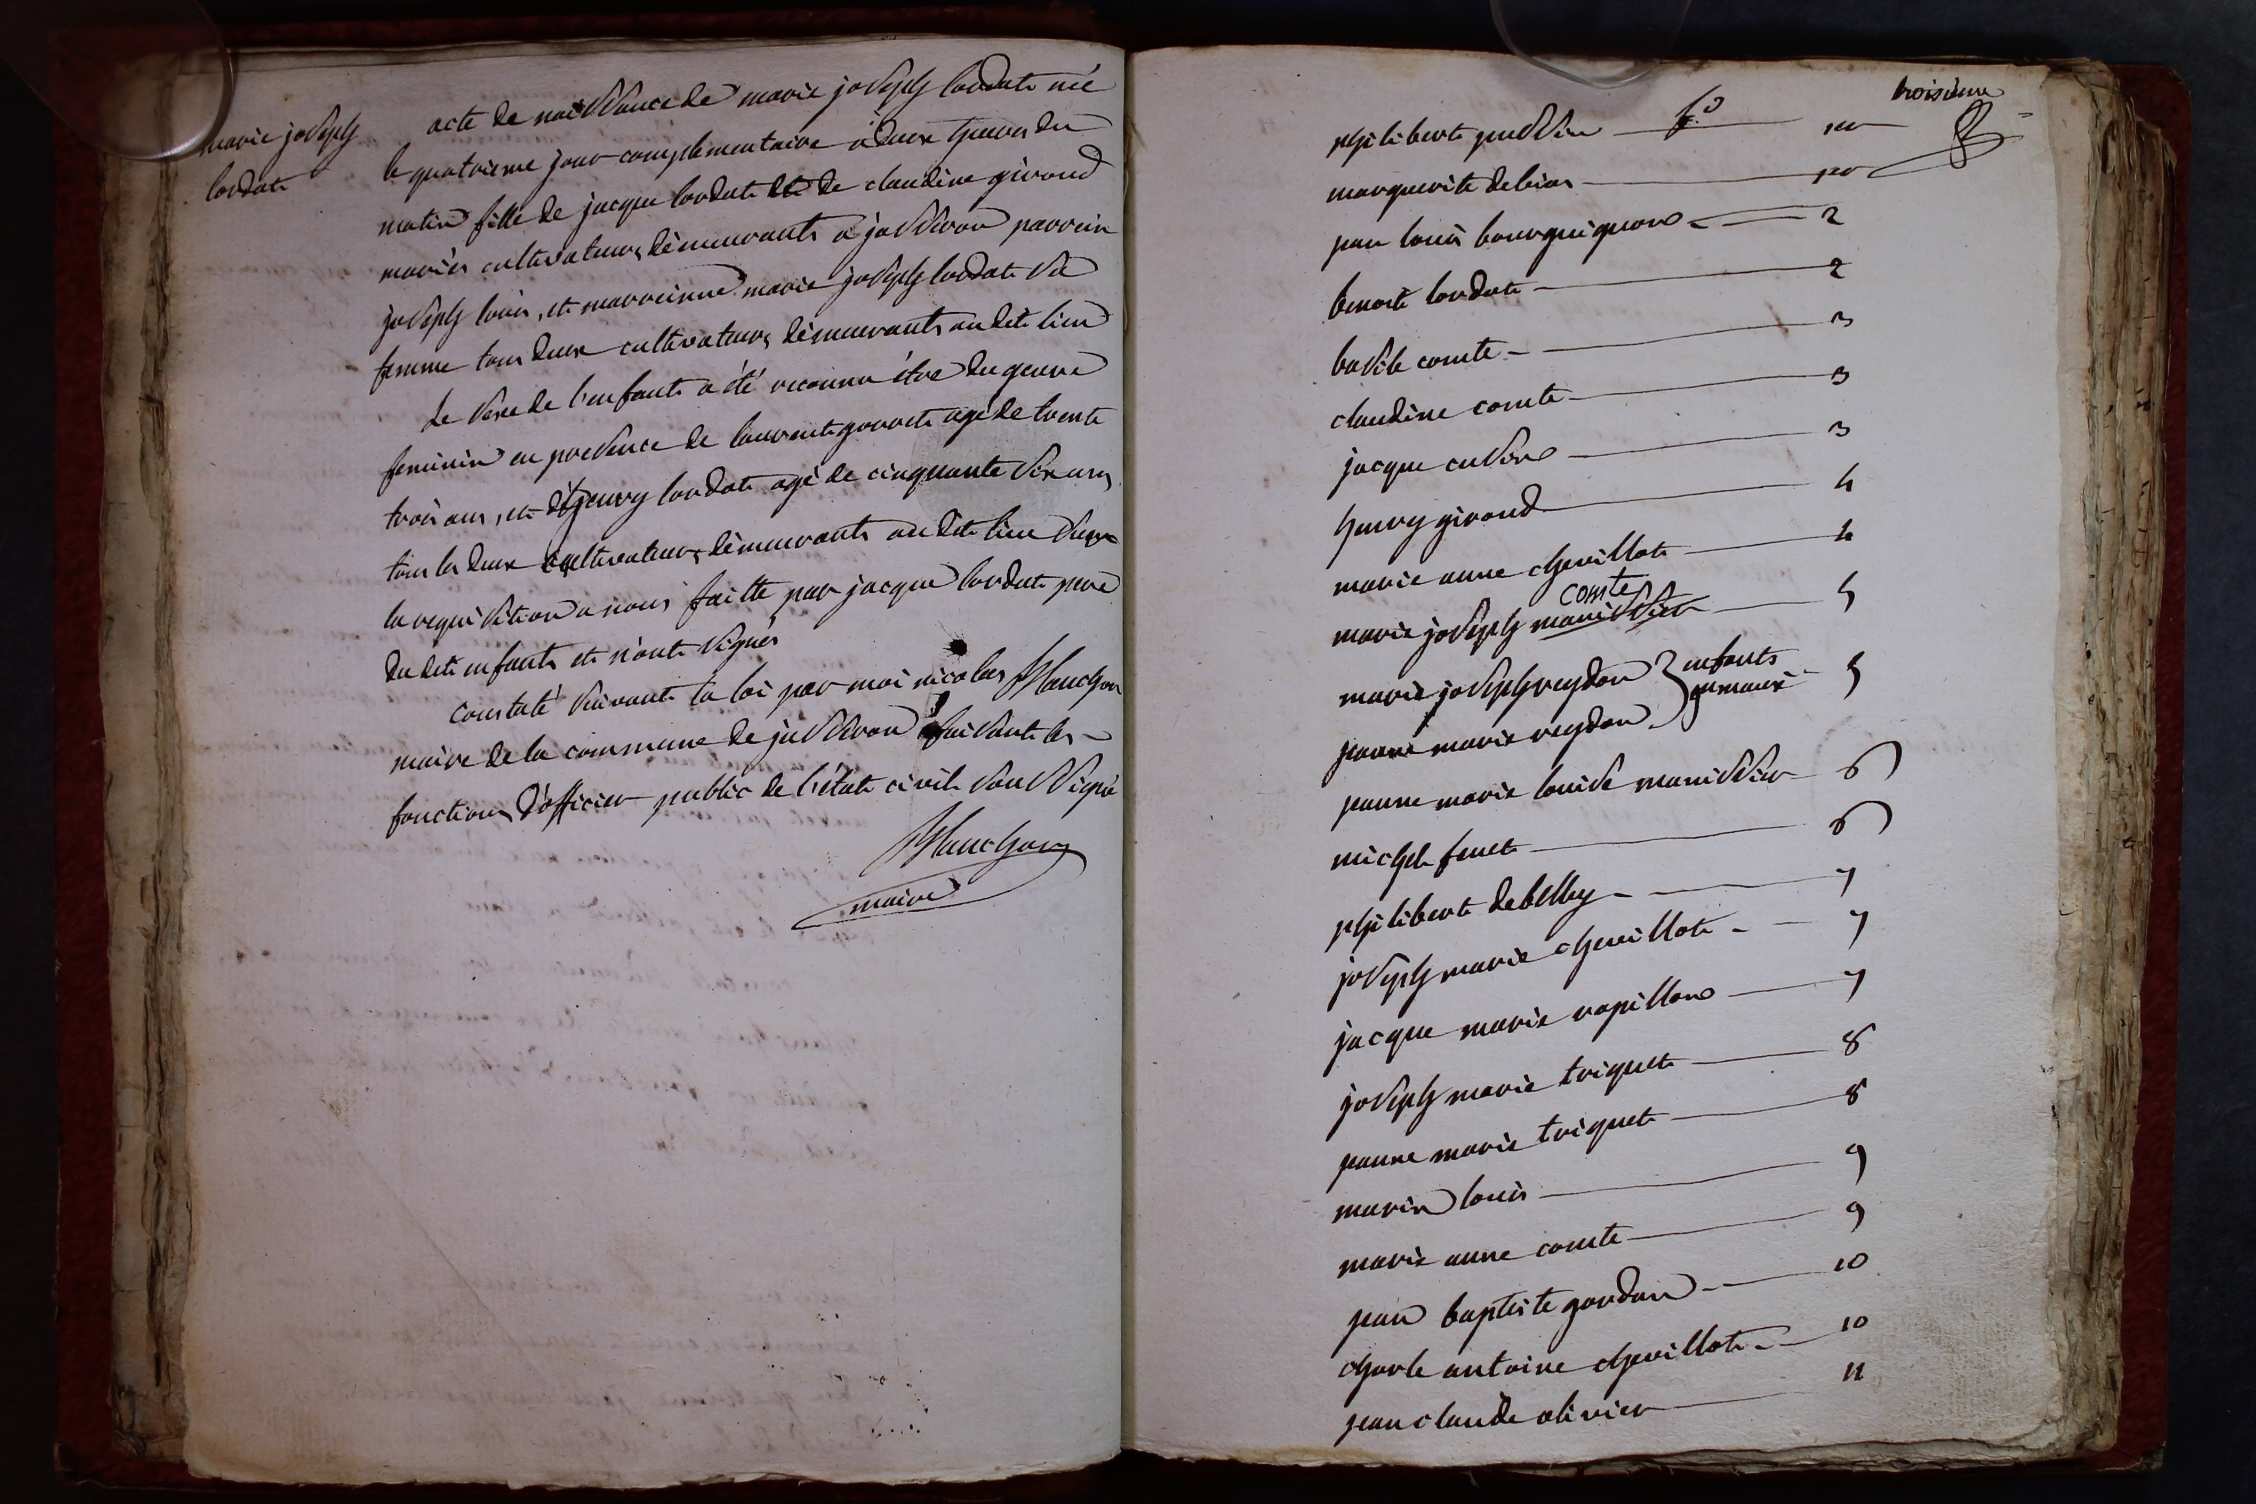 marie joseph
cordat
acte de naissance de marie joseph cordat née
le quatrieme jour complementaire à deux heures du
matin fille de jacque cordat et de claudine giroud
mariés cultivateurs démeurants a jasseron parrein
joseph louis, et marreinne marie joseph cordat sa
femme tous deux cultivateurs démeurants au dit lieu
Le sexe de l'enfant a été reconnu être du genre
feminin en presence de laurent gorrat agé de trente
trois ans, et d'henry cordat agé de cinquante six ans
tous les deux cultivateurs démeurants au dit lieu sur
la requisition a nous faitte par jacque cordat pere
du dit enfant et n'ont signés
constaté suivant la loi par moi nicolas
maire de la commune de jasseron faisant les
fonctions d'officier public de l'état civil soussigné
maire
troisieme
philibert fo
marguerite debias
jean louis bourguignon 2
benoit cordat 2
basile comte 3
claudine comte 3
jacque cusin 3
henry giroud 4
marie anne chevillot 4
comte
marie joseph manissier 5
marie joseph reydon enfants
gemaux 5
jeanne marie reydon
jeanne marie louise manissier 6
michel fenet 6
philibert debelley 7
joseph marie chevillot 7
jacque marie rapillon 7
joseph marie triquet 8
jeanne marie triquet 8
marin louis 9
marie anne comte 9
jean baptiste gordon 10
charle antoine chevillot 10
jean claude olivier 11